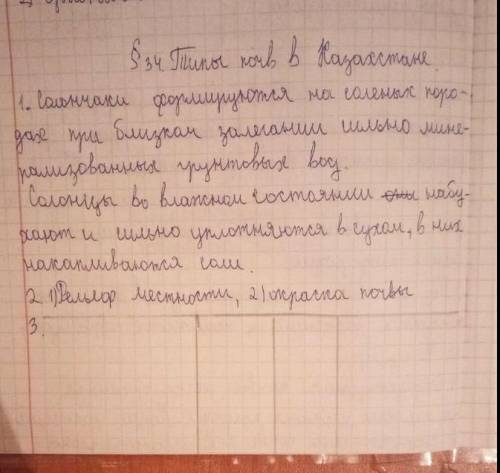 § 34 Типы почв в Казахстане.
1. Солончаки формируются на соленых поро-
дах при близком залегании сильно мине-
рализованных грунтовых вод.
Солонцы во влажном состоянии они набу-
хают и сильно уплотняются в сухом, в них
накапливаются соли.
2 1) Рельеф местности, 2) окраска почвы
3.